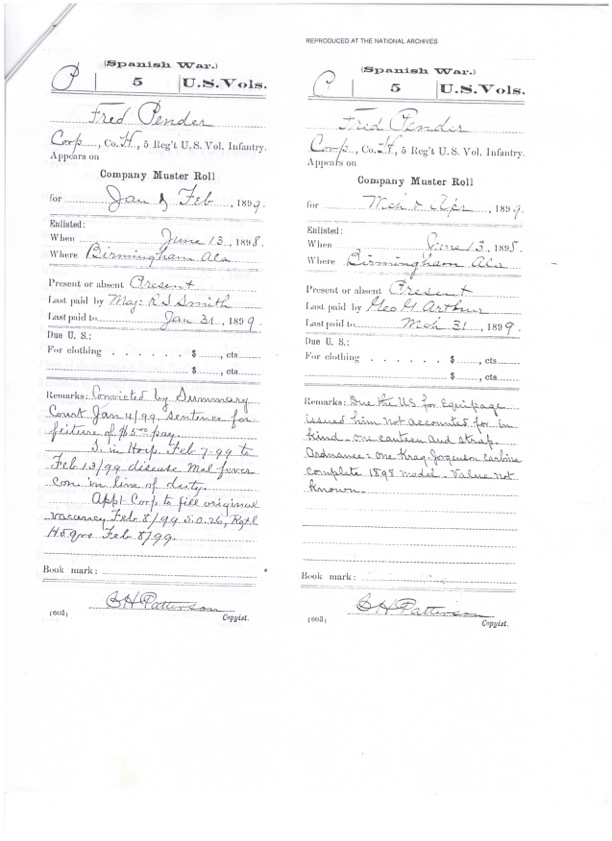 REPRODUCED AT THE NATIONAL ARCHIVES
(Spanish War.)
P | 5 | U.S.Vols.
Fred Pender
Corp., Co. H, 5 Reg't U. S. Vol. Infantry.
Appears on
Company Muster Roll
for Jan & Feb, 1899.
Enlisted:
When June 13, 1898.
Where Birmingham Ala
Present or absent Present
Last paid by Maj. R S Smith
Last paid to Jan 31, 1899.
Due U. S.:
For clothing . . . . . . $ ......, cts.
$ ......, cts.
Remarks: Convicted by Summary
Court Jan 4/99 sentence for
feiture of $5.00 pay.
S. in Hosp. Feb 7-99 to
Feb 13/99 disease Mal fever
con. in line of duty.
Appt Corp to fill original
vacancy Feb 8/99 S.O. 26, Rgtl
Hdqrs Feb 8/99.
Book mark:
B H Patterson
(603) Copyist.
(Spanish War.)
| 5 | U.S.Vols.
Fred Pender
Corp., Co. H, 5 Reg't U. S. Vol. Infantry.
Appears on
Company Muster Roll
for Mch & Apr, 1899.
Enlisted:
When June 13, 1898.
Where Birmingham Ala
Present or absent Present
Last paid by Geo H Arthur
Last paid to Mch 31, 1899.
Due U. S.:
For clothing . . . . . . $ ......, cts.
$ ......, cts.
Remarks: Due the U.S. for Equipage
issued him not accounted for in
kind - one canteen and strap.
Ordnance: one Krag-Jorgenson carbine
complete 1898 model. Value not
known.
Book mark:
B H Patterson
(603) Copyist.